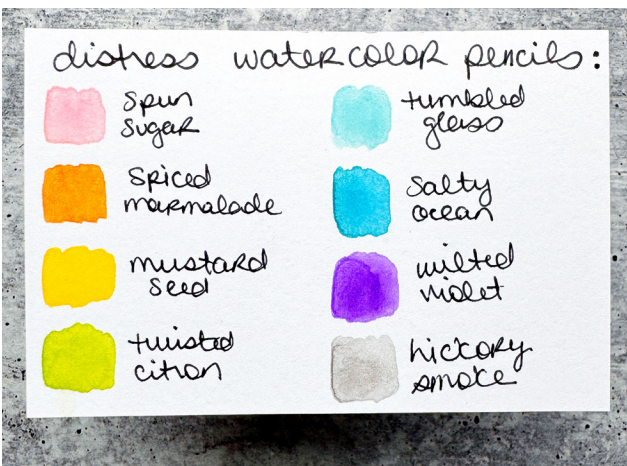 distress watercolor pencils:
spun
sugar
spiced
marmalade
mustard
seed
twisted
citron
tumbled
glass
salty
ocean
wilted
violet
hickory
smoke